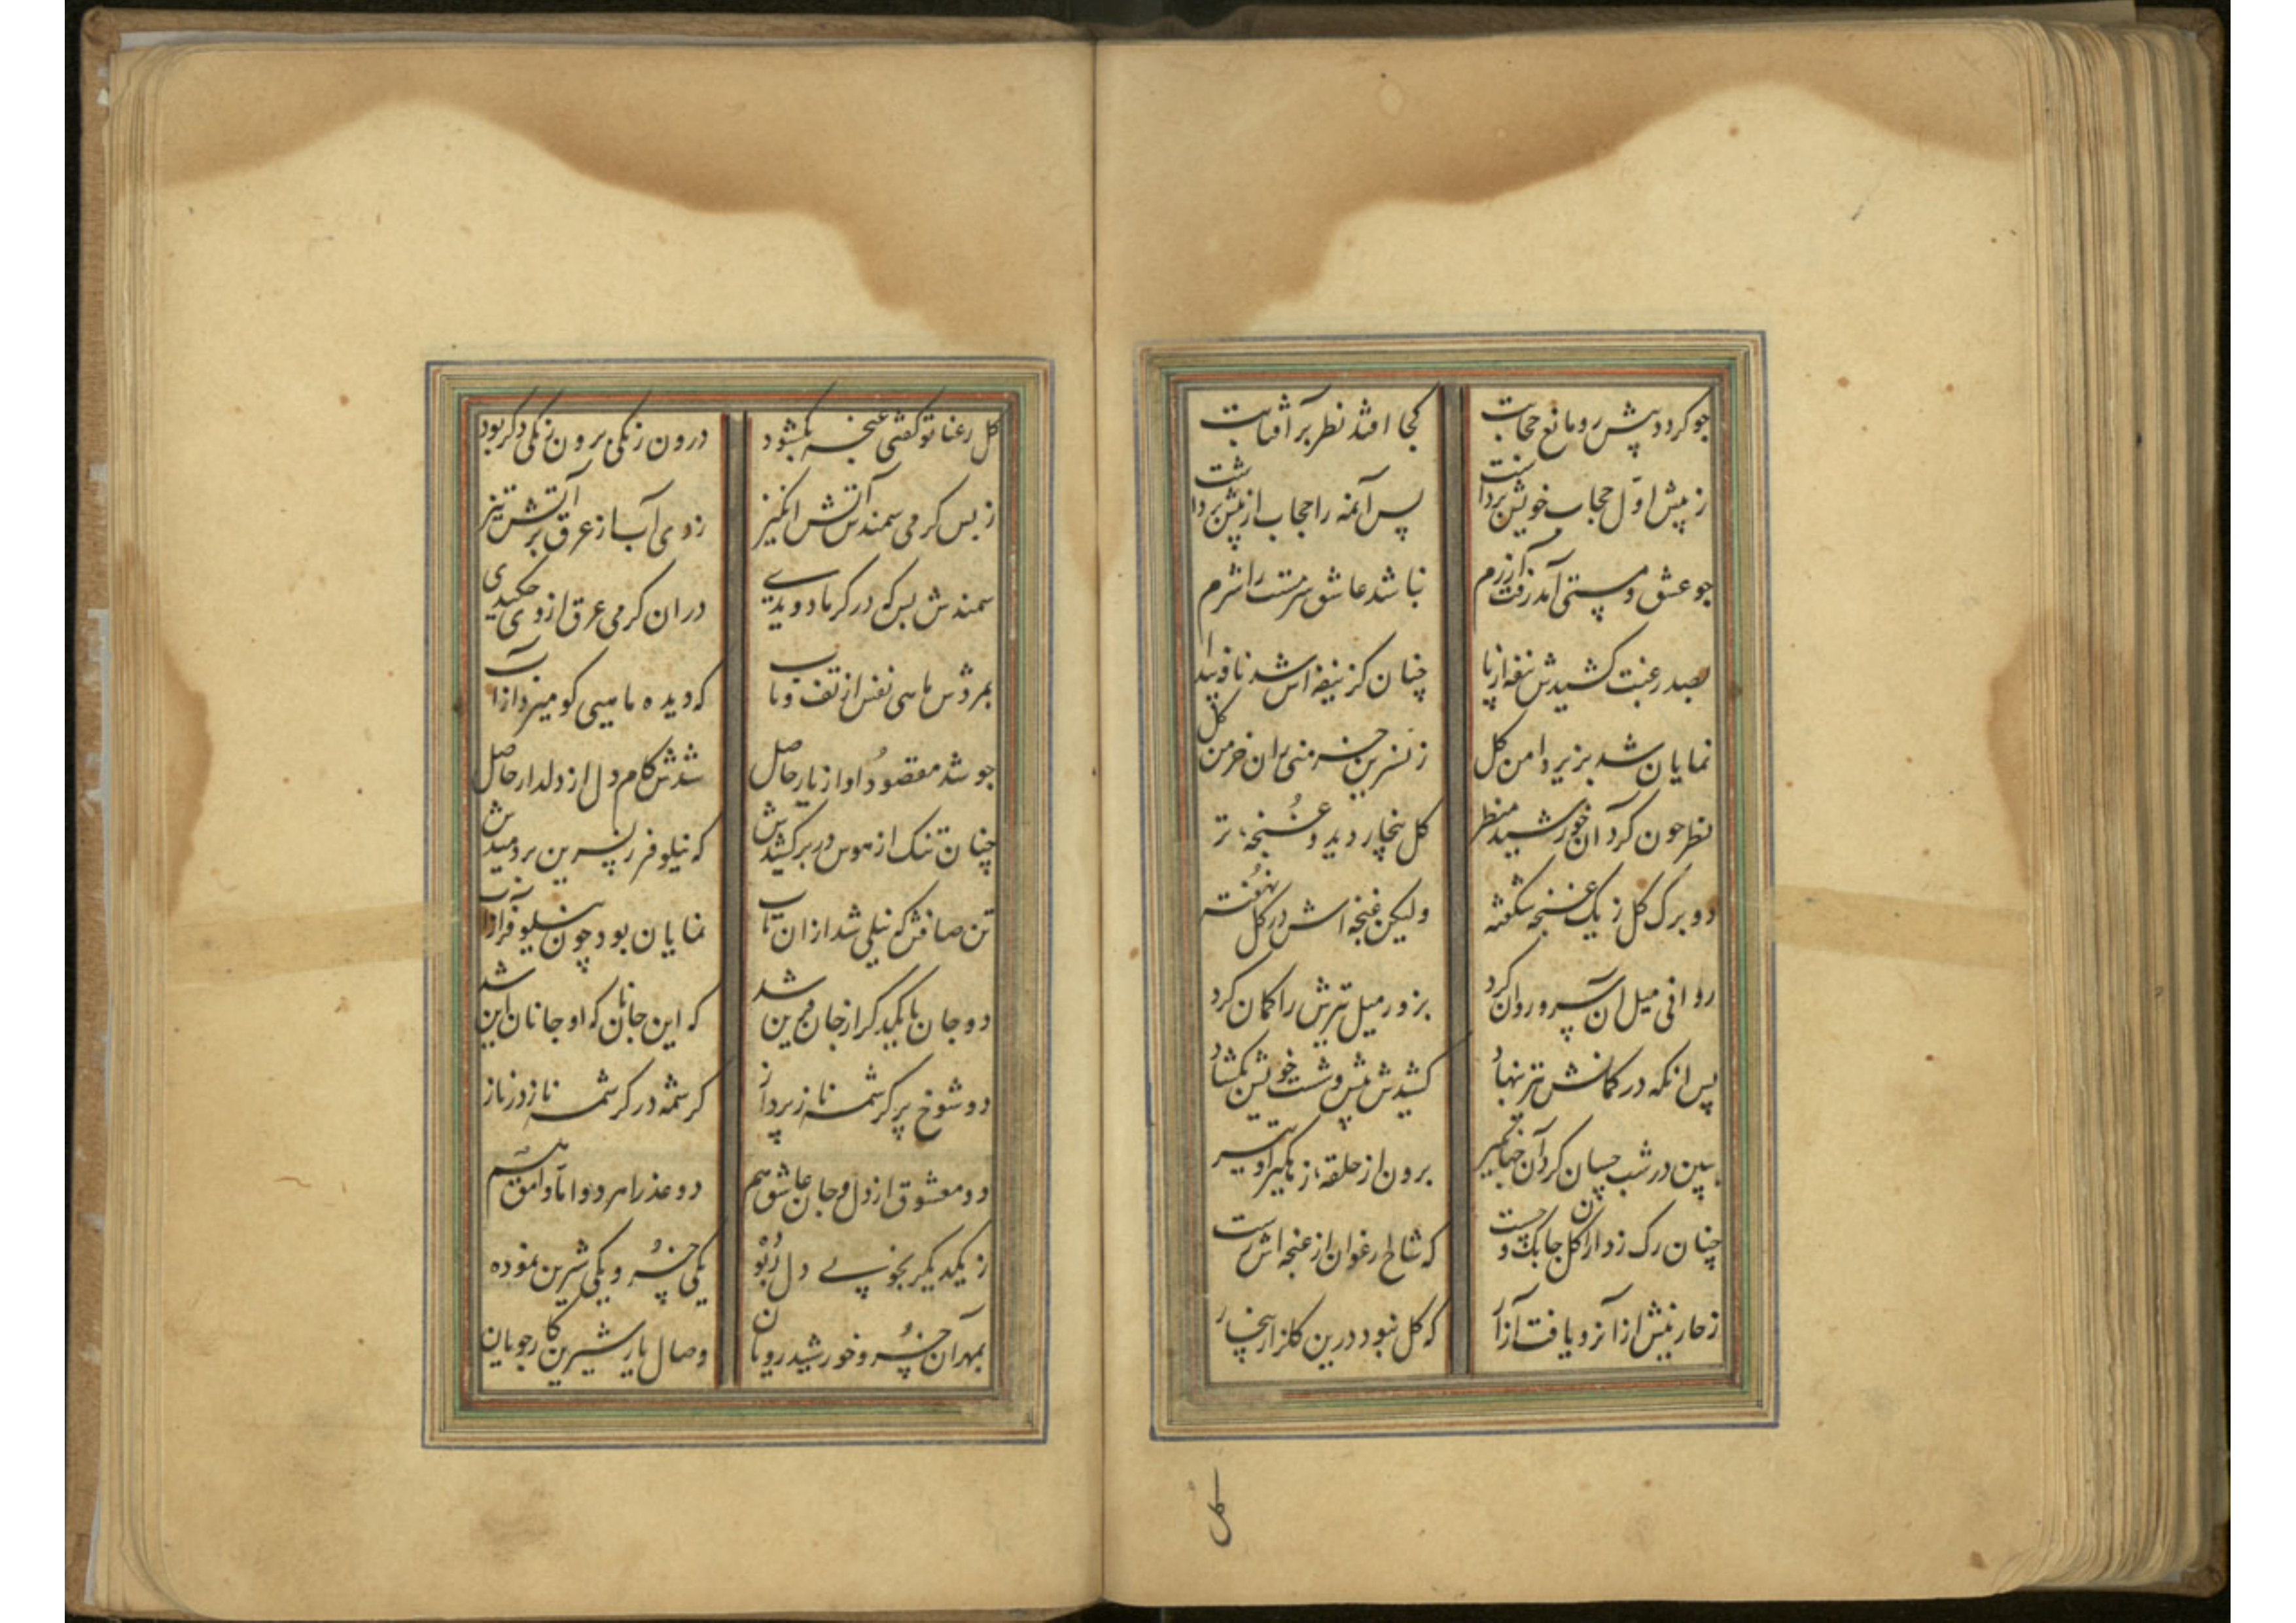 جو کردد پیش رو مانع حجابت کجا افتد نظر بر آفتابت
ز پیش اوّل حجاب خویش برداشت پس آنمه را حجاب از پیش برداشت
جو عشق و مستی آمد رفت آزرم نباشد عاشق سرمست را شرم
بصد رغبت کشیدش نیفه از پا چنان کز نیفه اش شد نافه پیدا
نمایان شد بزیر دامن کل ز نسرین خرمنی بران خرمن کل
نظر جون کرد آن خورشید منظر کل بیخار دید و غنجهٔ تر
دو برک کل ز یک غنجه شکفته ولیکن غنجه اش در کل نهفته
روانی میل آن سرو روان کرد بزور میل تیرش را کمان کرد
پس آنکه در کمانش تیر بنهاد کشیدش پیش و شست خویش بکشاد
ببین در شب جسان کرد آن جهانکیر برون از حلقهٔ زهکیر او تیر
چنان رک زد ازان کل جابک و چست که شاخ ارغوان از غنجه اش رست
ز خار نیش ازآنرو یافت آزار که کل نبود درین کلزار بیخار
کل
کل رعنا تو کفتی غنجه بکشود درون زنکی برون زنکی دکر بود
ز بس کرمی سمند آتش انکیز زدی آب از عرق بر آتش تیز
سمندش بس که در کرما دویدی دران کرمی عرق از وی جکیدی
بمردش ماهی نفس از تف و تاب که دیده ماهیی کو میرد از آب
جو شد مقصود او از یار حاصل شدش کام دل از دلدار حاصل
چنان تنک از هوس در بر کشیدش که نیلوفر ز نسرین بردمیدش
تن صافش که نیلی شد ازان تاب نمایان بود چون نیلوفر از آب
دو جان با یکدکر از جان قرین شد که این جانان که او جانان این شد
دو شوخ پر کرشمه ناز پرداز کرشمه در کرشمه ناز در ناز
دو معشوق از دل و جان عاشق هم دو عذرا هر دو اما وامق هم
ز یکدیکر بخوبی دل ربوده یکی خسرو یکی شیرین نموده
بمهر آن خسرو خورشید رویان وصال یار شیرین کار جویان